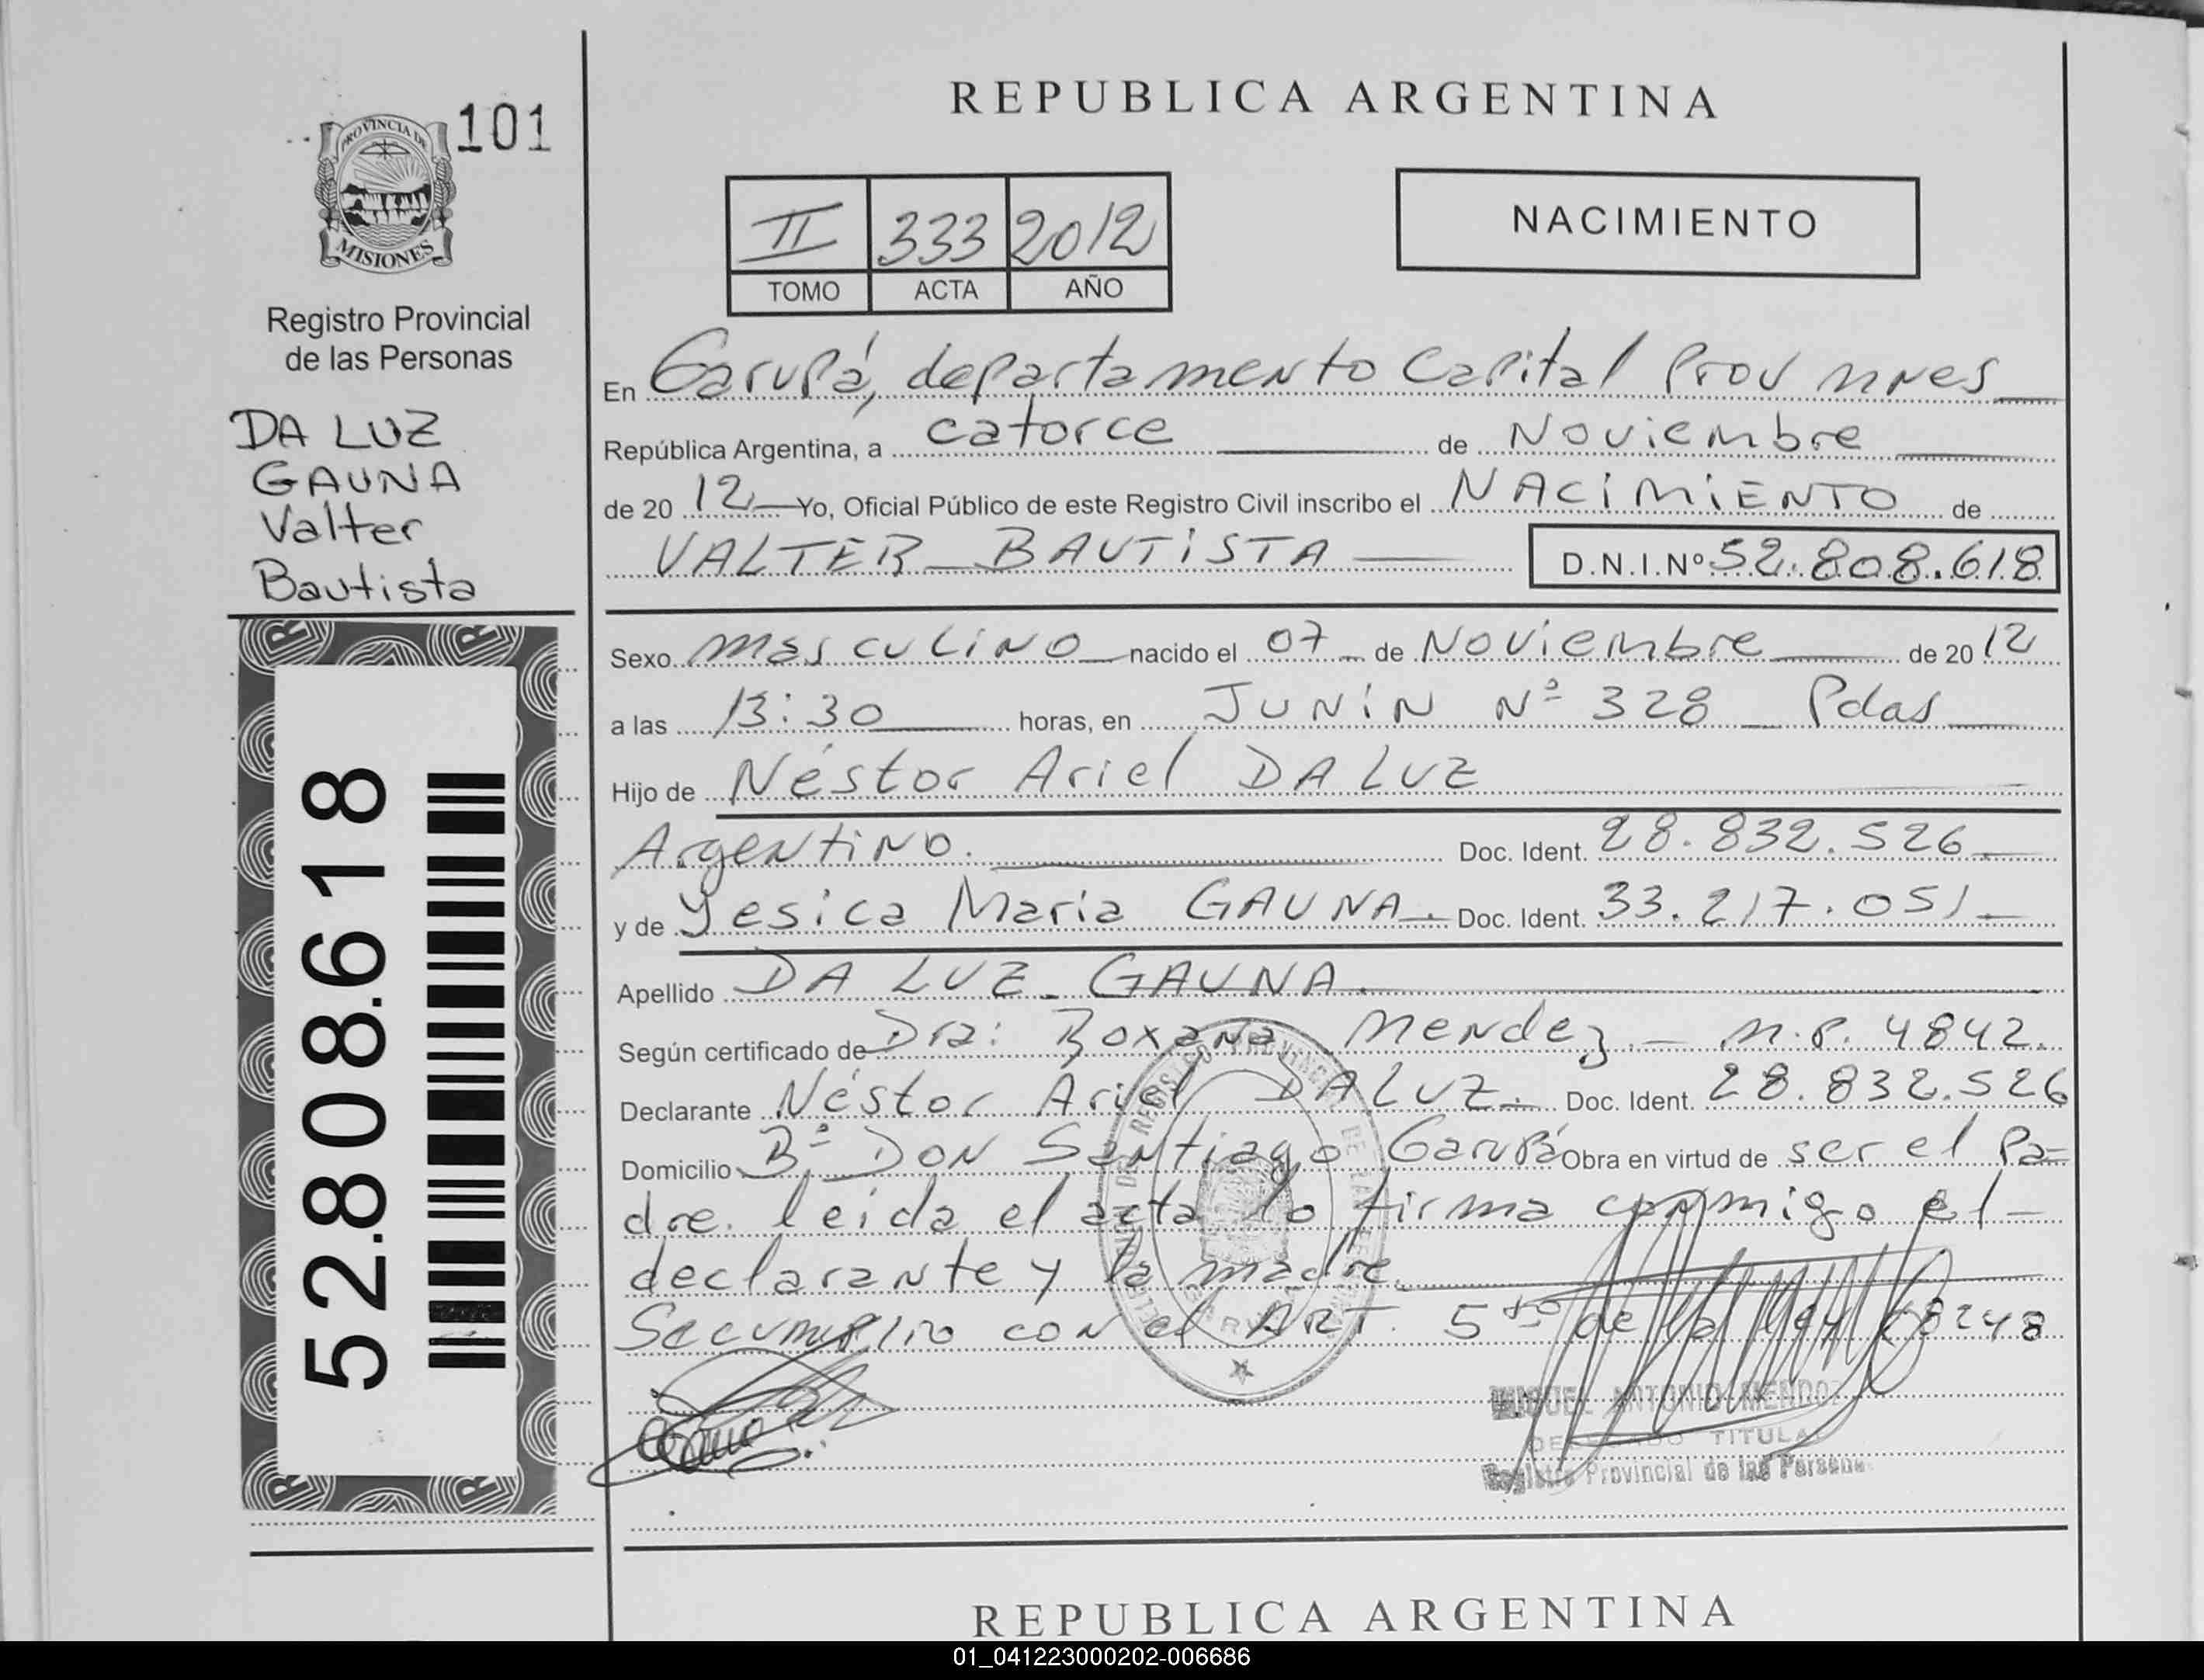 101
PROVINCIA DE
MISIONES
Registro Provincial
de las Personas
DA LUZ
GAUNA
Valter
Bautista
52.808.618
REPUBLICA ARGENTINA
II 333 2012
TOMO ACTA AÑO
NACIMIENTO
En Garupá, departamento Capital Prov Mnes
República Argentina, a catorce de Noviembre
de 20 12 Yo, Oficial Público de este Registro Civil inscribo el NACIMIENTO de
VALTER BAUTISTA D.N.I.Nº 52.808.618
Sexo masculino nacido el 07 de Noviembre de 20 12
a las 13:30 horas, en JUNIN Nº 328 Pdas
Hijo de Néstor Ariel DA LUZ
Argentino. Doc. Ident. 28.832.526
y de Yesica Maria GAUNA. Doc. Ident. 33.217.051
Apellido DA LUZ GAUNA.
Según certificado de Dra: Roxana Mendez M.P. 4842.
Declarante Néstor Ariel DA LUZ. Doc. Ident. 28.832.526
Domicilio Bº DON Santiago Garupá Obra en virtud de ser el Pa=
dre. leida el acta lo firma conmigo el
declarante y la madre
Se cumplio con el ART. 5to de la ley 18248
MIGUEL ANTONIO MENDOZ
DELEGADO TITULA
Registro Provincial de las Persona
REPUBLICA ARGENTINA
01_041223000202-006686